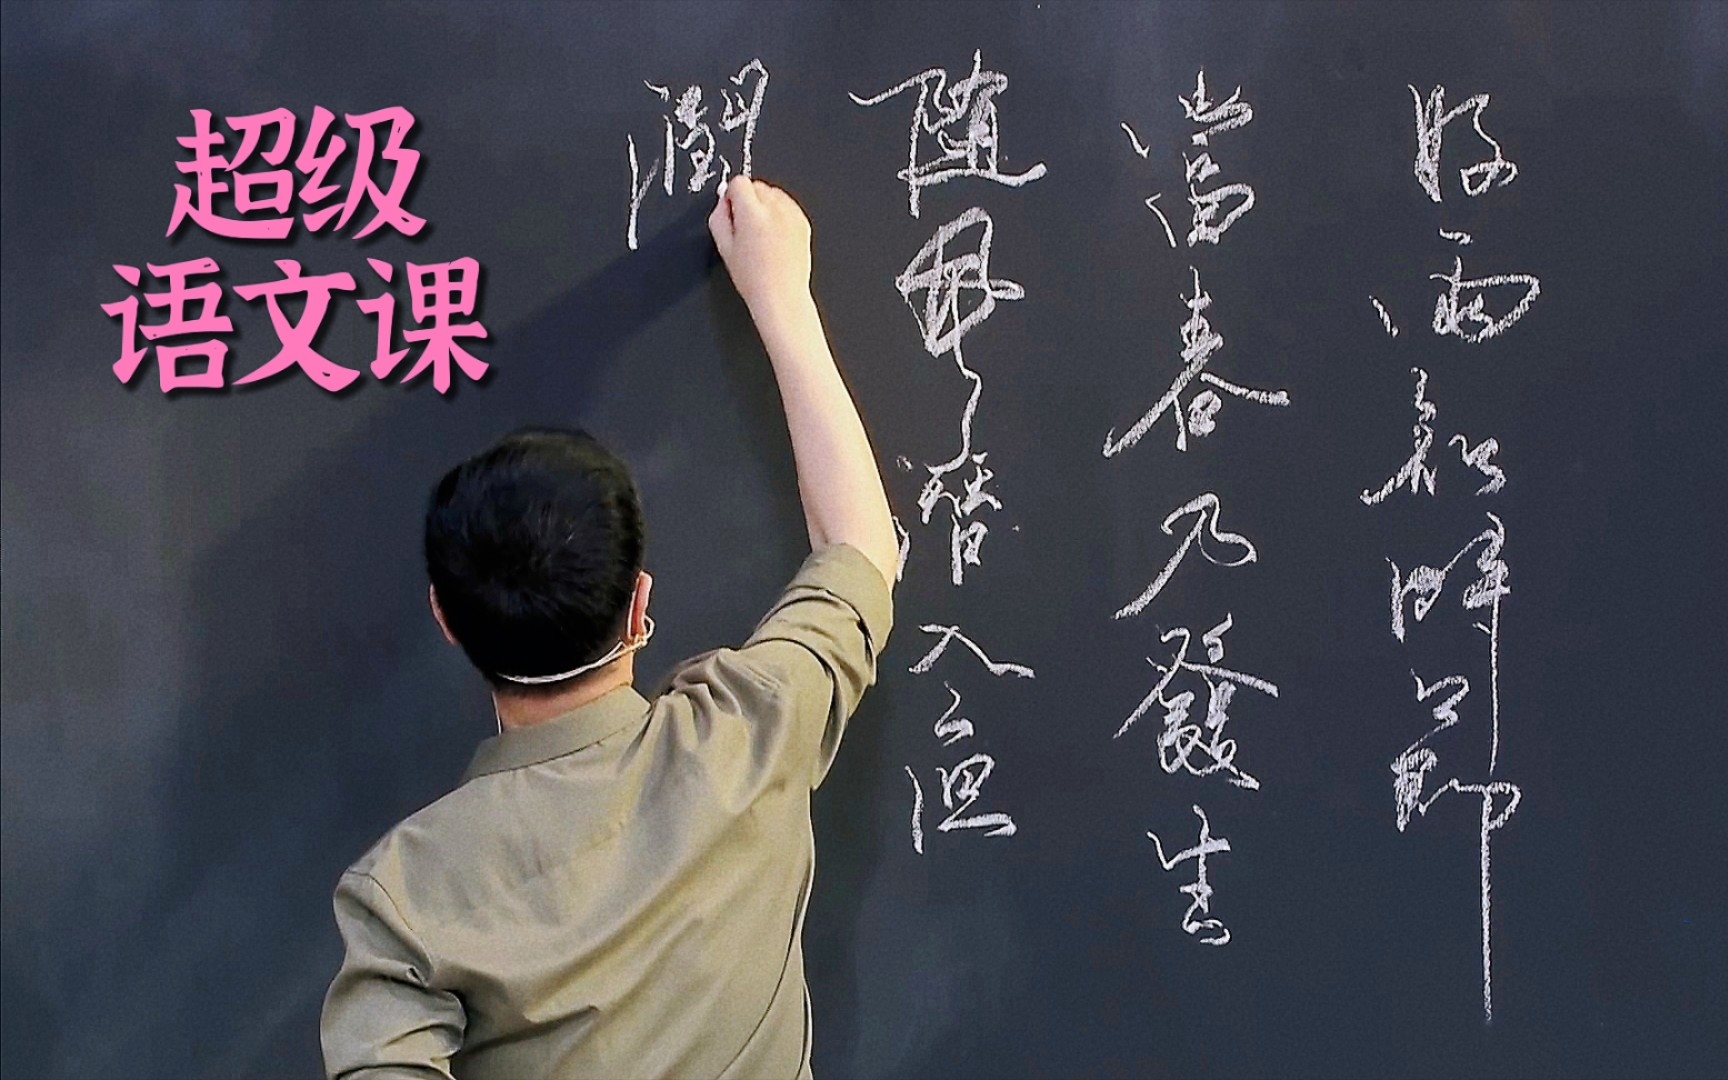 超级
语文课
好雨知時節
當春乃發生
随風潜入夜
潤